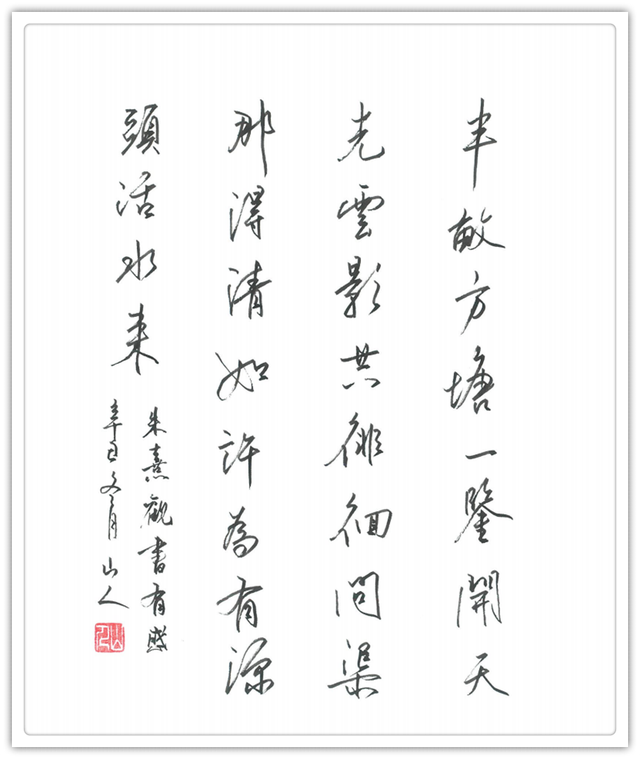 半畝方塘一鑒開天
光雲影共徘徊問渠
那得清如許為有源
頭活水来
朱熹觀書有感
辛丑文月山人
山人